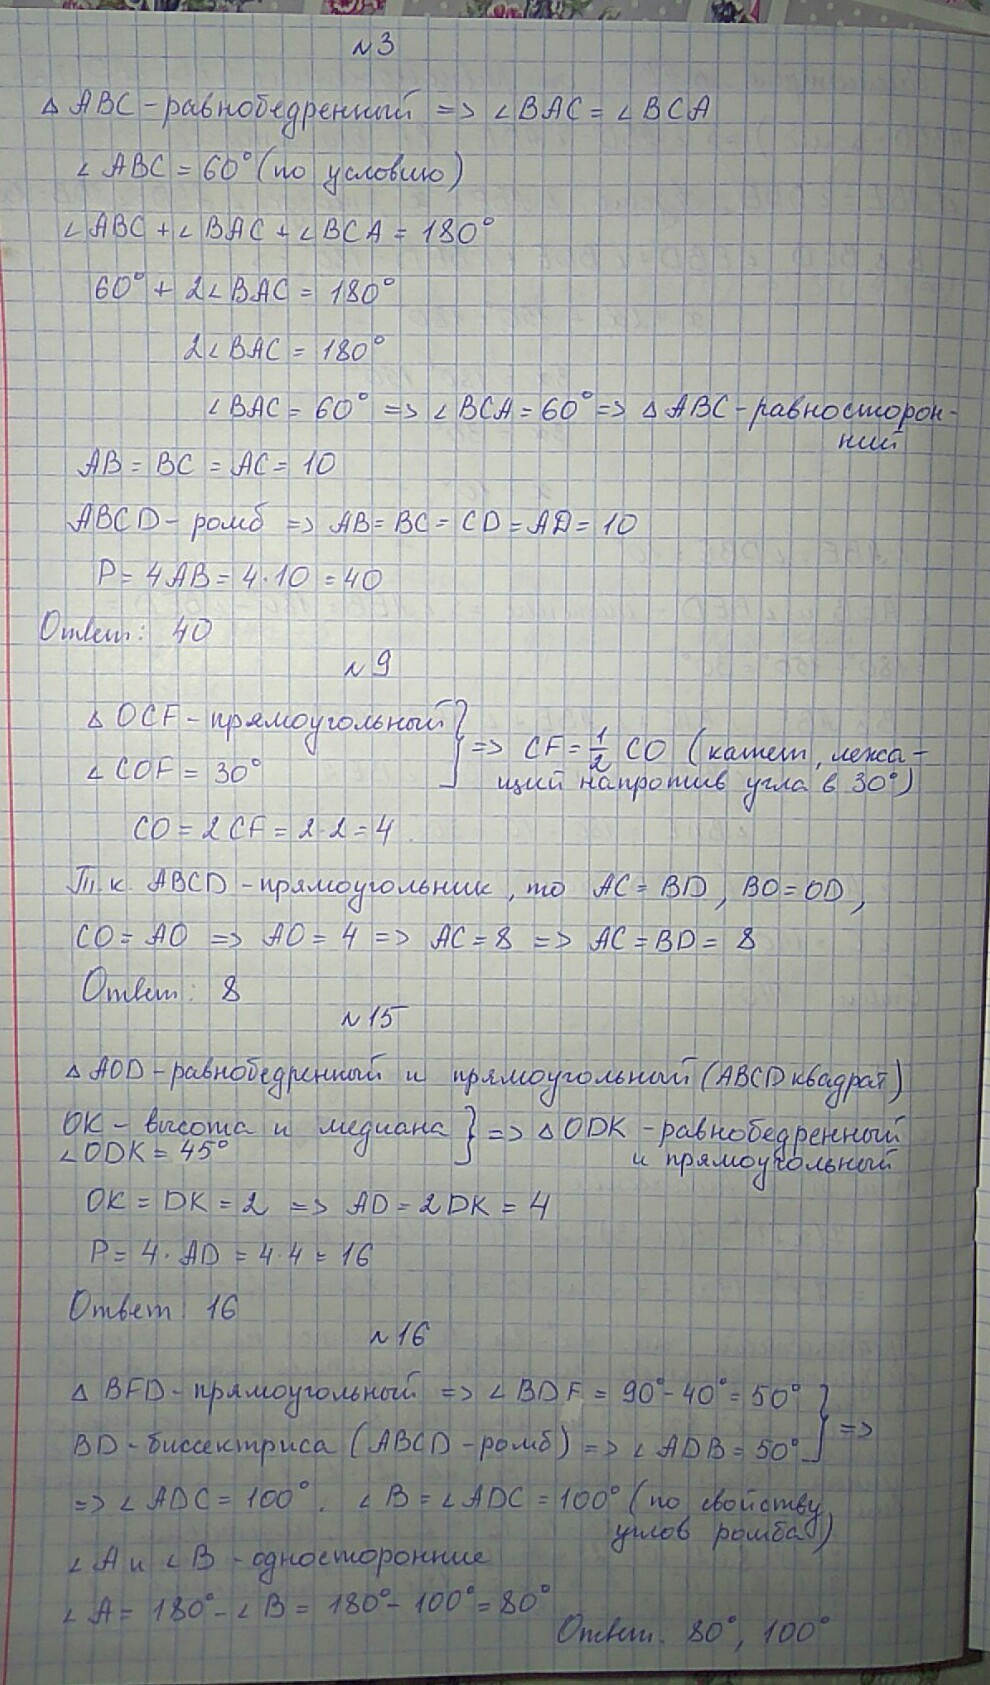 №3
△ ABC - равнобедренный => ∠BAC = ∠BCA
∠ABC = 60° (по условию)
∠ABC + ∠BAC + ∠BCA = 180°
60° + 2∠BAC = 180°
2∠BAC = 180°
∠BAC = 60° => ∠BCA = 60° => △ABC - равносторон-
ний
AB = BC = AC = 10
ABCD - ромб => AB = BC = CD = AD = 10
P = 4AB = 4·10 = 40
Ответ: 40
№9
△ OCF - прямоугольный
∠COF = 30° } => CF = 1/2 CO (катет, лежа-
щий напротив угла в 30°)
CO = 2CF = 2·2 = 4
Т.к. ABCD - прямоугольник, то AC = BD, BO = OD,
CO = AO => AO = 4 => AC = 8 => AC = BD = 8
Ответ: 8
№15
△ AOD - равнобедренный и прямоугольный (ABCD квадрат)
OK - высота и медиана } => △ODK - равнобедренный
∠ODK = 45° и прямоугольный
OK = DK = 2 => AD = 2DK = 4
P = 4·AD = 4·4 = 16
Ответ: 16
№16
△ BFD - прямоугольный => ∠BDF = 90° - 40° = 50° } =>
BD - биссектриса (ABCD - ромб) => ∠ADB = 50°
=> ∠ADC = 100°. ∠B = ∠ADC = 100° (по свойству
углов ромба)
∠A и ∠B - односторонние
∠A = 180° - ∠B = 180° - 100° = 80°
Ответ: 80°, 100°